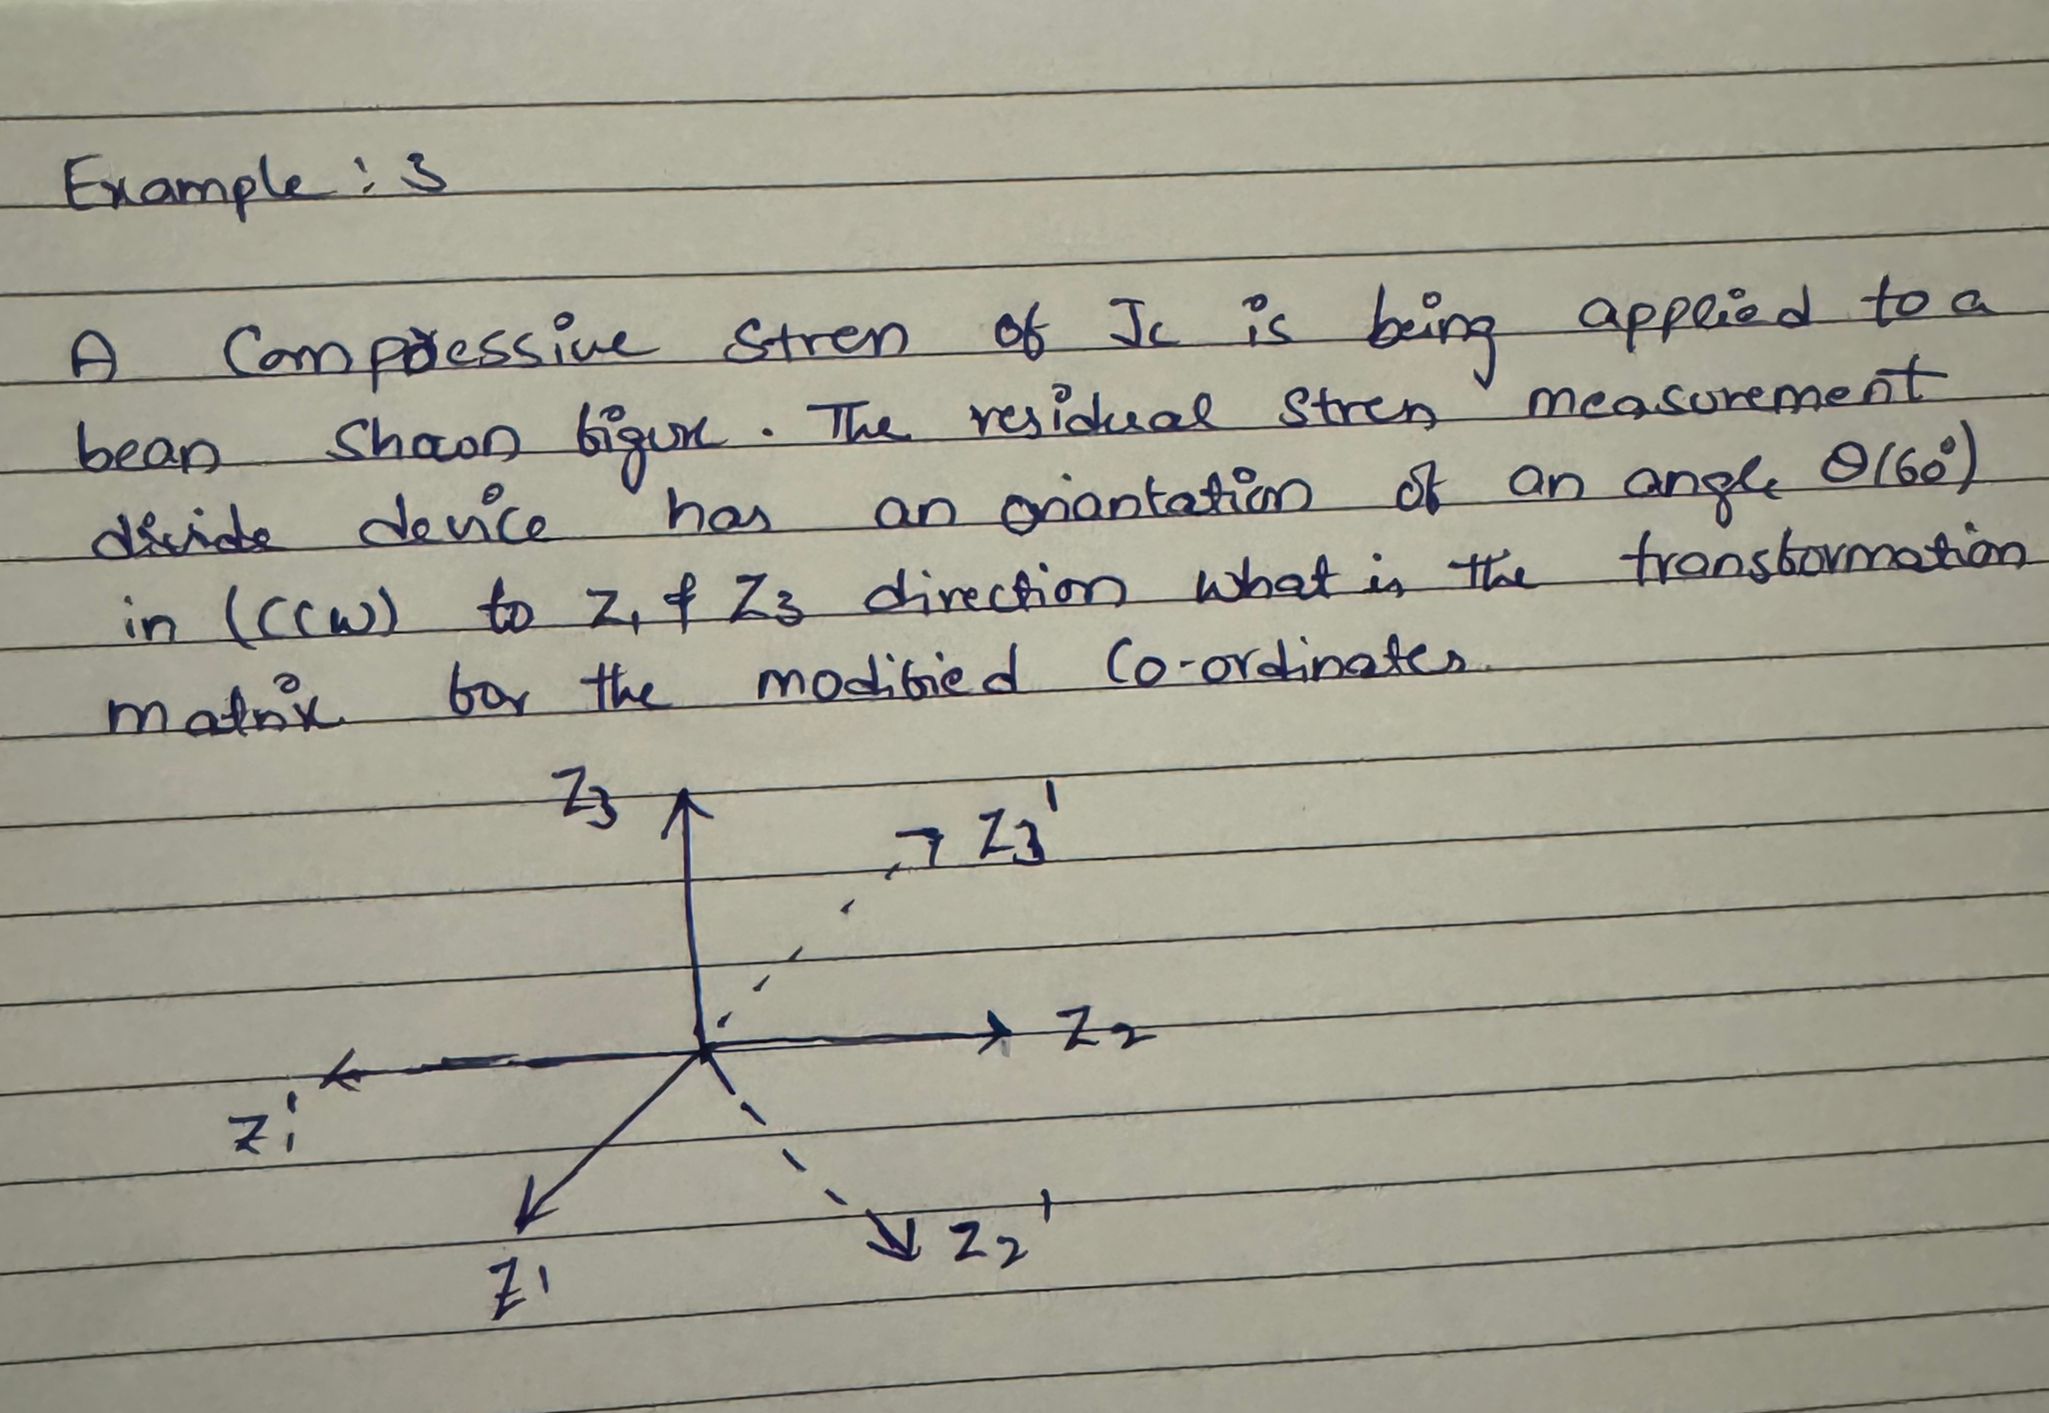 Example : 3
A Compressive Stress of Jc is being applied to a
bean shown figure. The residual Stress measurement
divide device has an oriantation of an angle θ(60°)
in (CCW) to Z1 & Z3 direction what is the transformation
matrix for the modified Co-ordinates.
Z3
Z3'
Z2
Z1'
Z2'
Z1